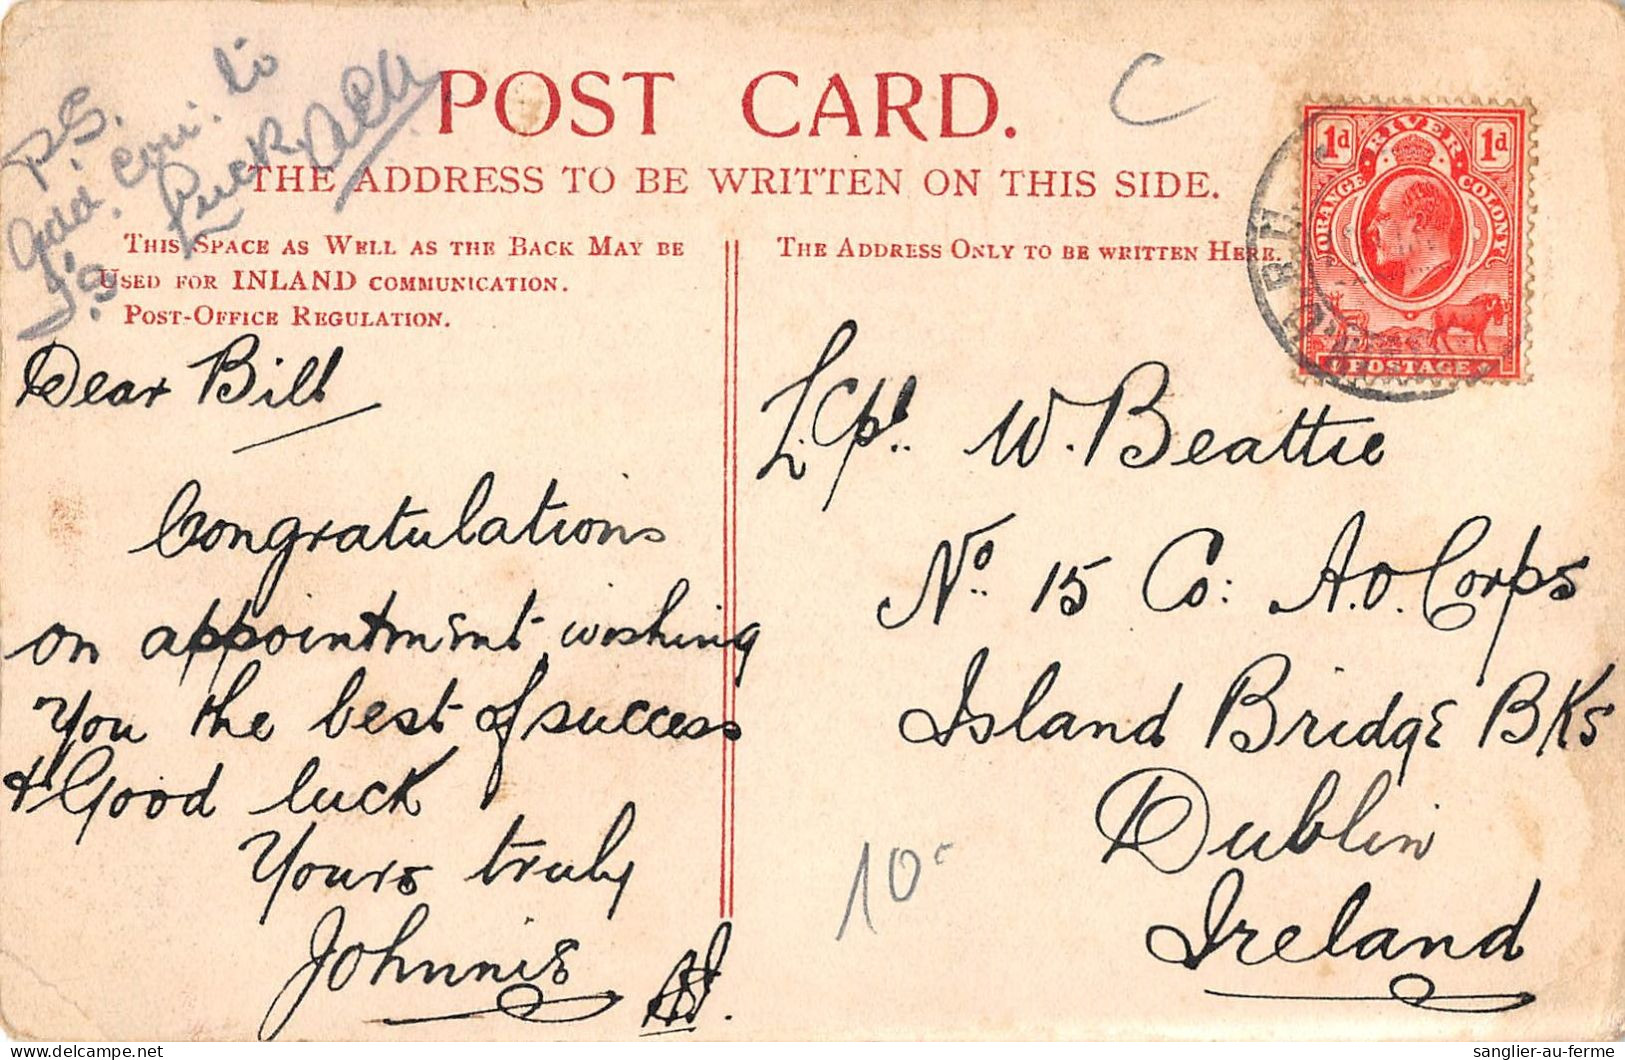 POST CARD.
THE ADDRESS TO BE WRITTEN ON THIS SIDE.
P.S.
Add. to
C
THIS SPACE AS WELL AS THE BACK MAY BE
USED FOR INLAND COMMUNICATION.
POST-OFFICE REGULATION.
THE ADDRESS ONLY TO BE WRITTEN HERE.
1d 1d
ORANGE RIVER COLONY
POSTAGE
Dear Bill
Congratulations
on appointmEnt wishing
You the best of success
& Good luck
Yours truly
JohnniE
L. Cpl. W. Beattie
No. 15 Co: A.O. Corps
Island BridgE BKs
Dublin
Ireland
10
sanglier-au-ferme